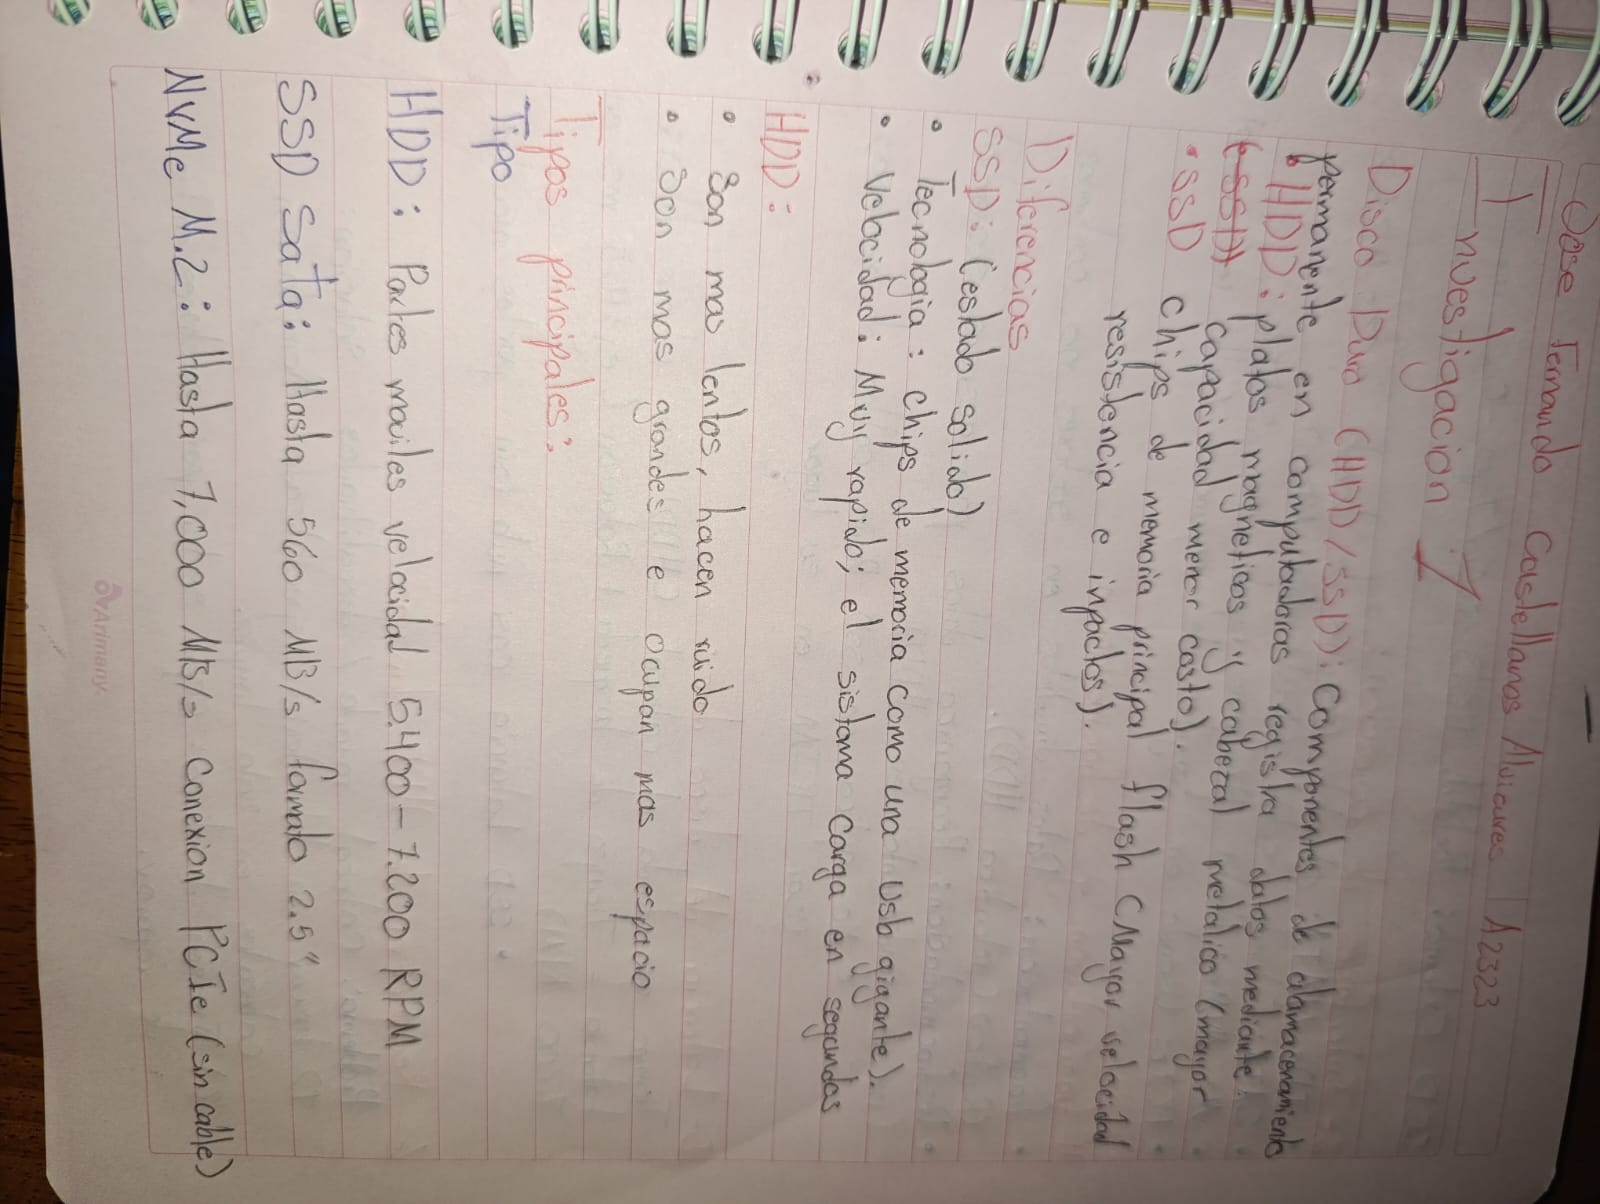 Jose Fernando Castellanos Alvicures | A2323
Investigacion 1
Disco Duro (HDD/SSD): Componentes de alamacenamiento
permanente en computadoras registra datos mediante
• HDD: platos magneticos y cabezal metalico (mayor
(SSD) capacidad menor costo).
• SSD chips de memoria principal flash (Mayor velocidad
resistencia e inpactos).
Diferencias
SSD: (estado solido)
• Tecnologia: chips de memoria como una Usb gigante).
• Velocidad: Muy rapido; el sistama carga en segundos
HDD:
• Son mas lentos, hacen ruido
• Son mas grandes e ocupan mas espacio
Tipos principales:
Tipo
HDD: Partes moviles velocidad 5.400-7.200 RPM
SSD Sata: Hasta 560 MB/s formato 2.5"
NVMe M.2: Hasta 7,000 MB/s Conexion PCIe (sin cable)
Arimany